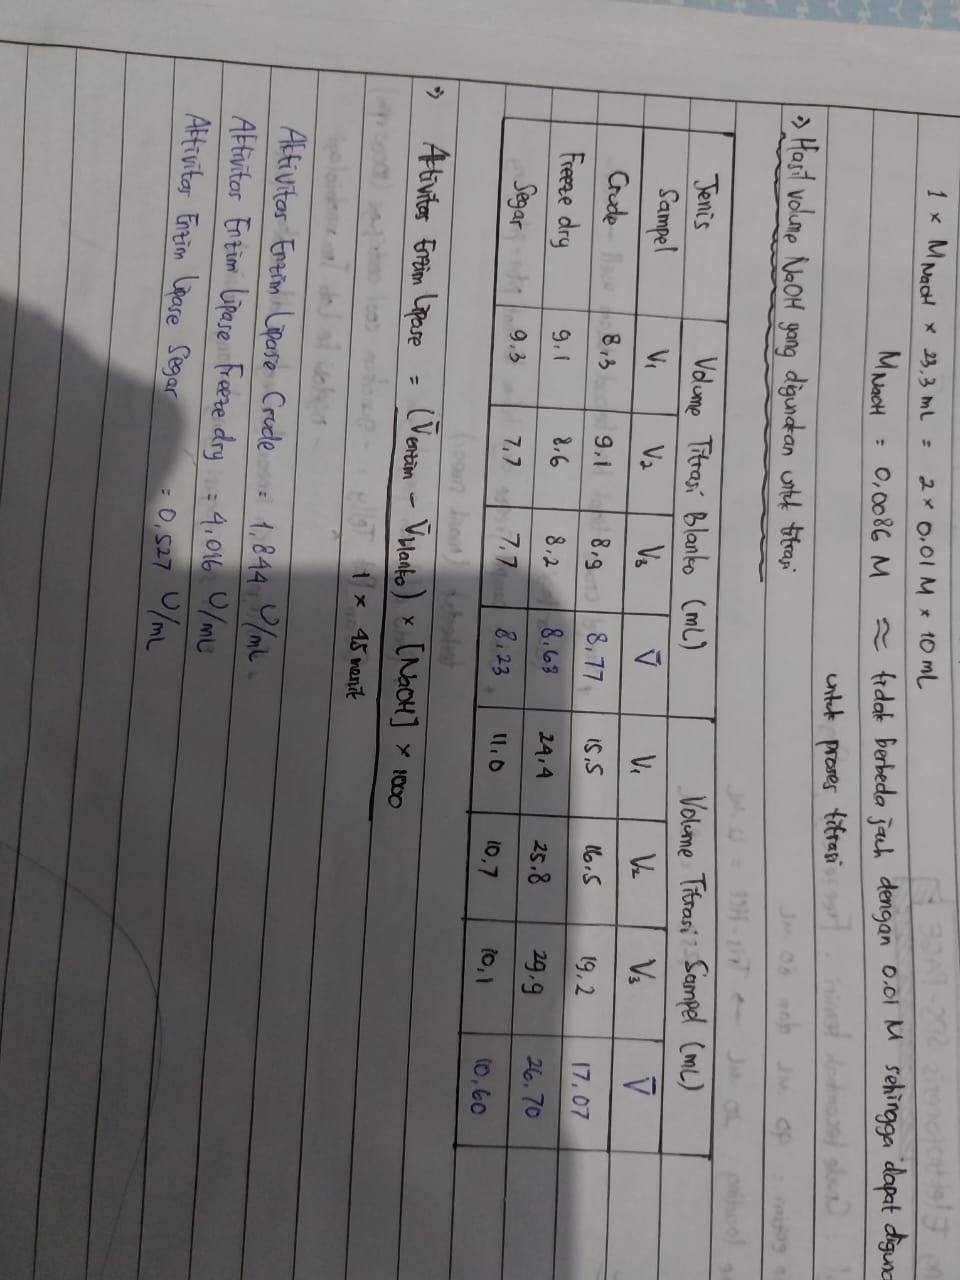 1 × M NaOH × 23,3 mL = 2 × 0,01 M × 10 mL
M NaOH = 0,0086 M ≈ tidak berbeda jauh dengan 0,01 M sehingga dapat digunc
untuk proses titrasi
=> Hasil volume NaOH yang digunakan untuk titrasi
Jenis Sampel | Volume Titrasi Blanko (mL) | Volume Titrasi Sampel (mL)
V₁ | V₂ | V₃ | V̅ | V₁ | V₂ | V₃ | V̅
Crude | 8,3 | 9,1 | 8,9 | 8,77 | 15,5 | 16,5 | 19,2 | 17,07
Freeze dry | 9,1 | 8,6 | 8,2 | 8,63 | 24,4 | 25,8 | 29,9 | 26,70
Segar | 9,3 | 7,7 | 7,7 | 8,23 | 11,0 | 10,7 | 10,1 | 10,60
=> Aktivitas Enzim Lipase = (V̅enzim - V̅blanko) × [NaOH] × 1000
1 × 45 menit
Aktivitas Enzim Lipase Crude = 1,844 U/mL
Aktivitas Enzim Lipase Freeze dry = 4,016 U/mL
Aktivitas Enzim Lipase Segar = 0,527 U/mL